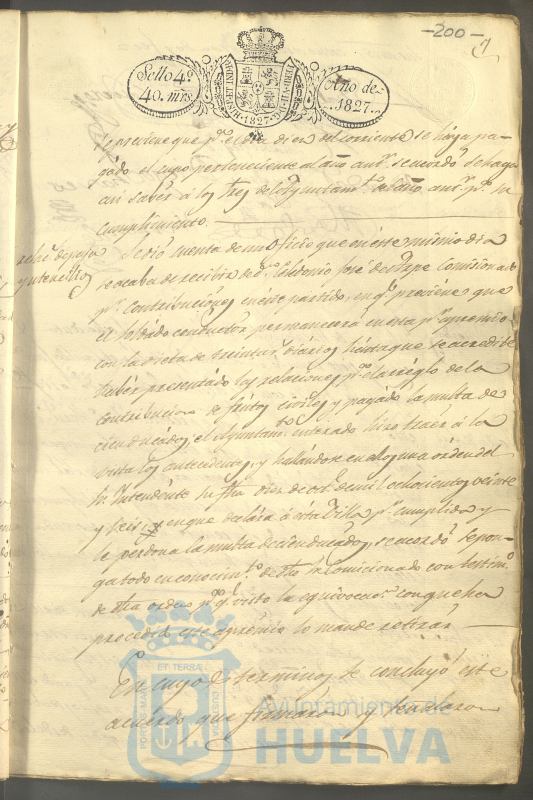 -200-
Sello 4º
40. mrs
HISP. ET IND. R. 1827
Año de
1827
se previene que pª el dia diez del corriente se haya pa-
gado el cupo perteneciente al año antr. se acordó se haga
asi saber á los Sres del Ayuntamtº. del año antr. pª su
cumplimiento.
y utencilios
Se dió cuenta de un Oficio que en este mismo dia
se acaba de recibir de Dn. José del Comisionado
pr. contribuciones en este partido, en qe. previene que
el soldado conductor permanecerá en esta pr. apremio
con la dieta de diarios hasta que se acredite
haber presentado las relaciones pª. el arréglo de la
contribucion de frutos civiles y pagado la multa de
cien ducados, el Ayuntamtº enterado hizo traér á la
vista los antecedentes, y hallandose en ellos una órden del
Sr. Intendente fha diez de oct. de mil ochocientos veinte
y seis, en que declára á esta Villa pr. cumplida y
le perdona la multa de cien ducados, se acordó se pon-
ga todo en conocimtº. de dho Sr. comisionado con testimº
de dha orden pª. qe. visto la equivocacn. con que ha
procedido este apremio lo mande retirar
En cuyos terminos se concluyó este
acuerdo que firmaron y señalaron
PORTUS MARIS
ET TERRÆ
CUSTODIA
Ayuntamiento de
HUELVA